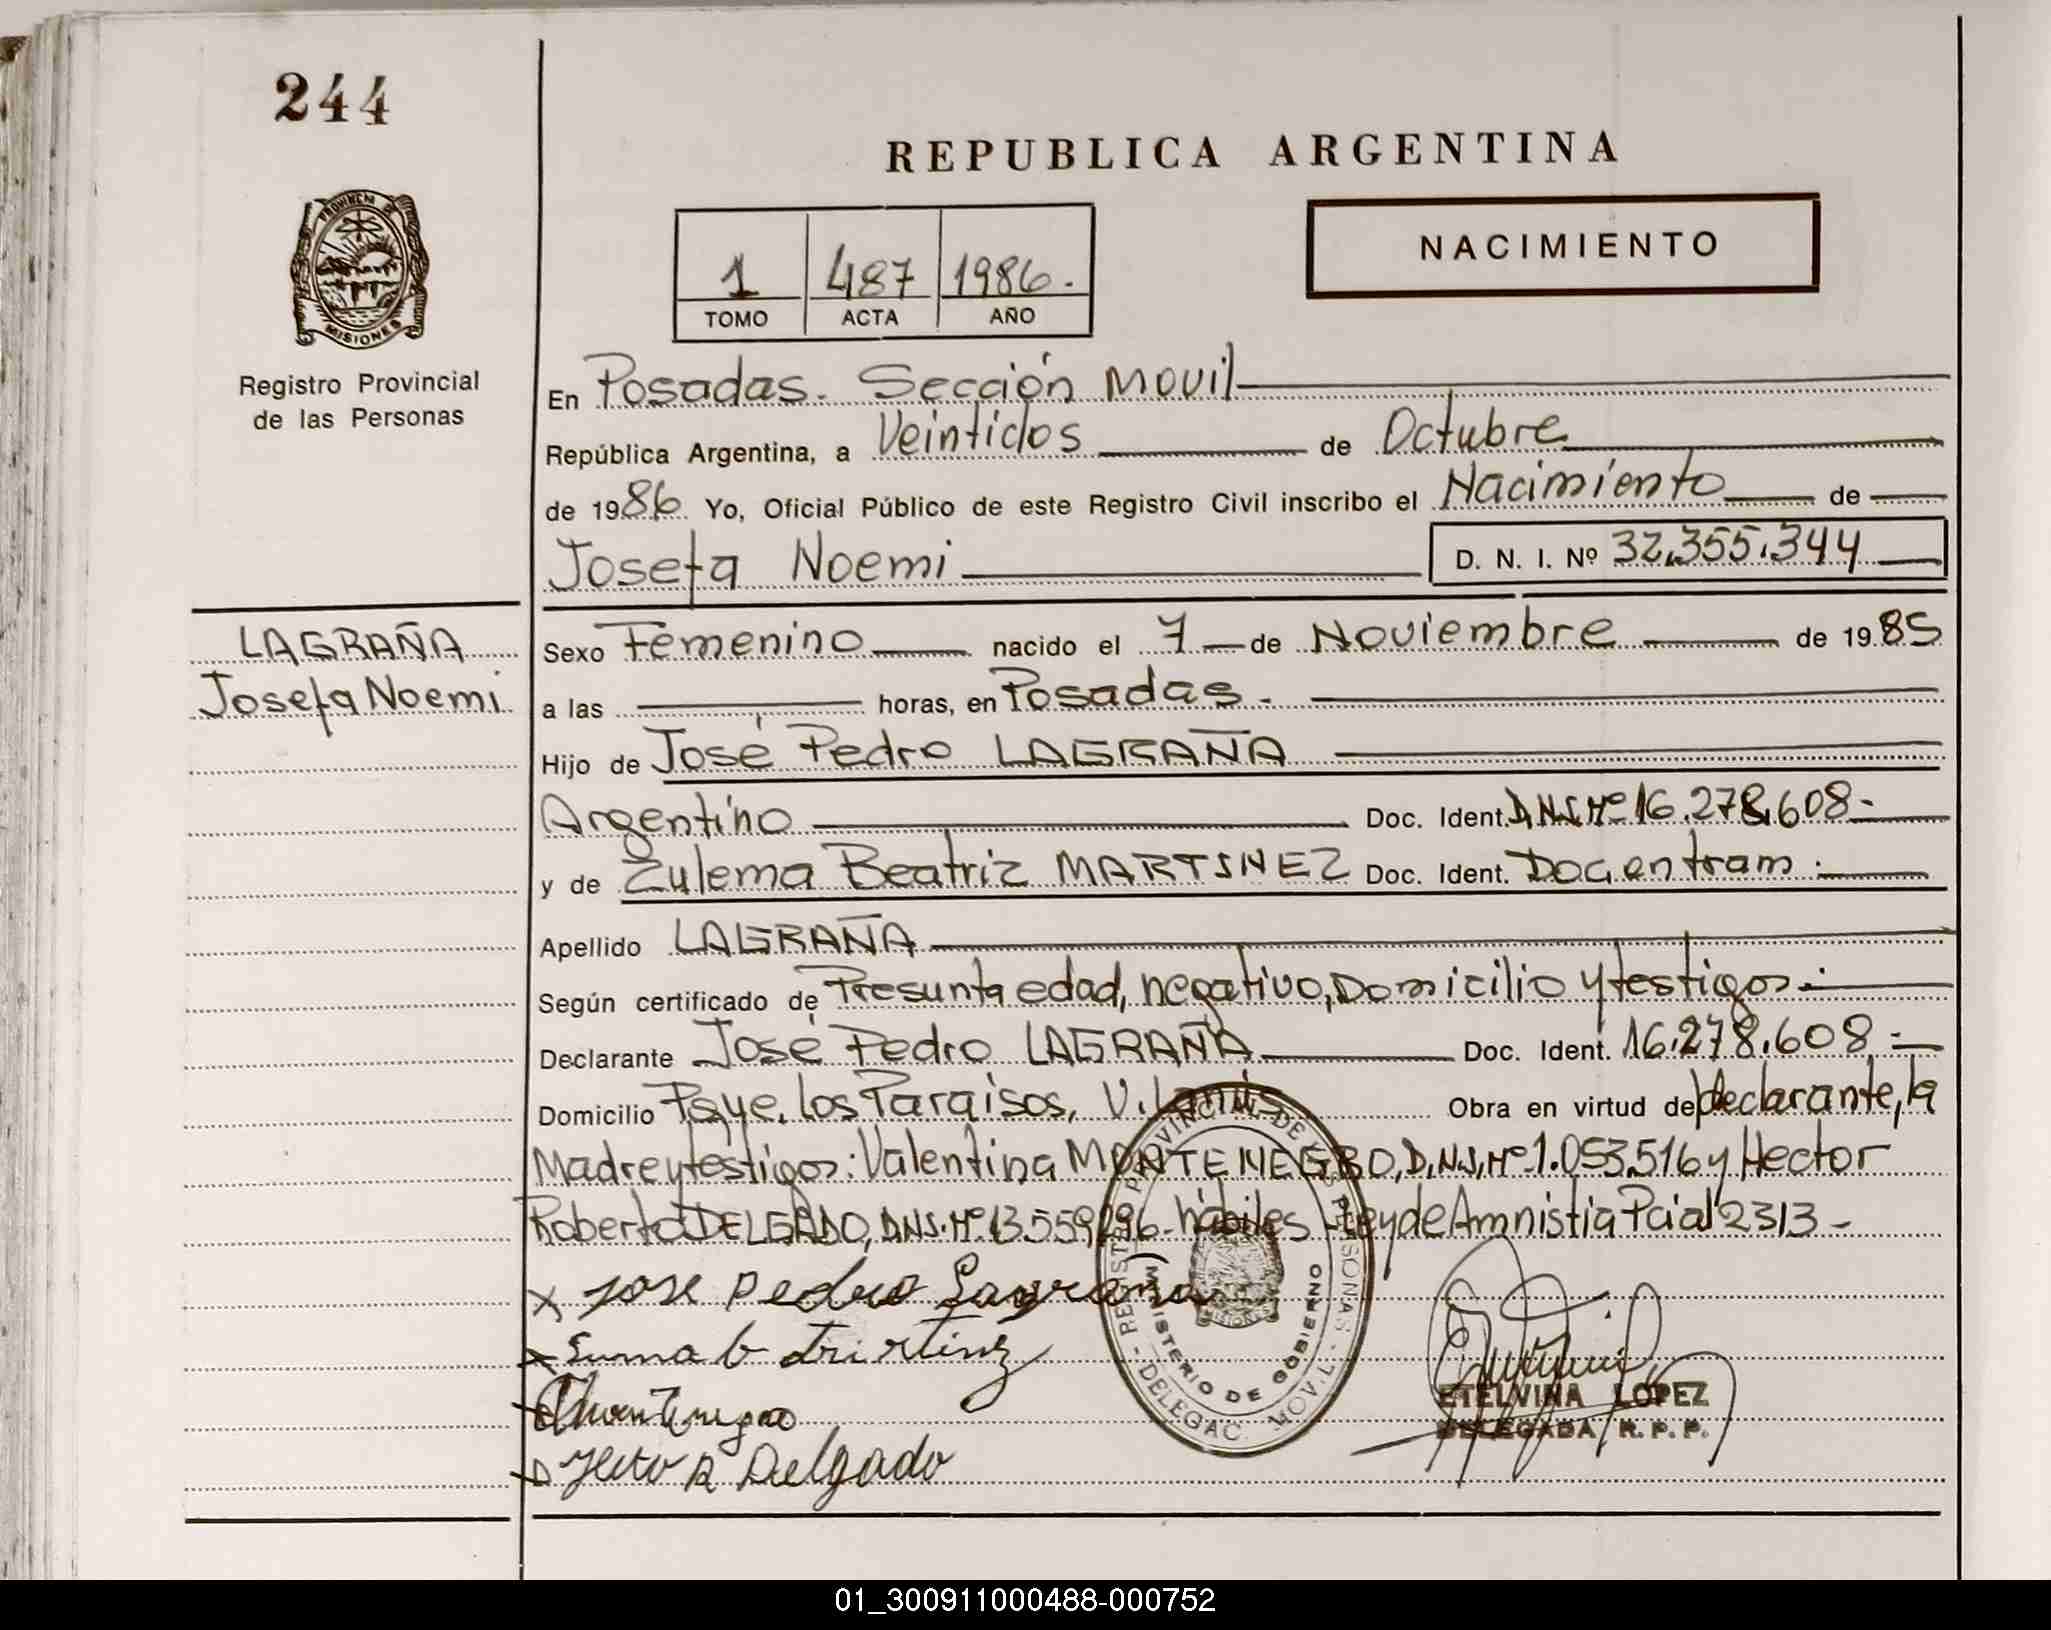 244
REPUBLICA ARGENTINA
PROVINCIA DE
MISIONES
Registro Provincial
de las Personas
1 487 1986.
TOMO ACTA AÑO
NACIMIENTO
En Posadas. Sección Movil
República Argentina, a Veintidos de Octubre
de 1986 Yo, Oficial Público de este Registro Civil inscribo el Nacimiento de
Josefa Noemi D. N. I. Nº 32.355.344
LAGRAÑA
Josefa Noemi
Sexo Femenino nacido el 7 de Noviembre de 1985
a las horas, en Posadas.
Hijo de José Pedro LAGRAÑA
Argentino Doc. Ident. D.N.I. Nº 16.278.608-
y de Zulema Beatriz MARTINEZ Doc. Ident. Doc. en tram.
Apellido LAGRAÑA
Según certificado de Presunta edad, negativo, Domicilio y testigos.
Declarante José Pedro LAGRAÑA Doc. Ident. 16.278.608.-
Domicilio Paye, los Paraisos, V. Lanús Obra en virtud de declarante, la
Madre y testigos: Valentina MONTENEGRO, D.N.I. Nº 1.053.516 y Hector
Roberto DELGADO, D.N.I. Nº 13.559.296- hábiles - Ley de Amnistia Pcial 2313-
x Jose Pedro Lagraña
x
x Montenegro
x Hector R Delgado
REGISTRO PROVINCIAL DE LAS PERSONAS - DELEGAC. MOVIL -
MINISTERIO DE GOBIERNO
MISIONES
ETELVINA LOPEZ
DELEGADA R. P. P.
01_300911000488-000752